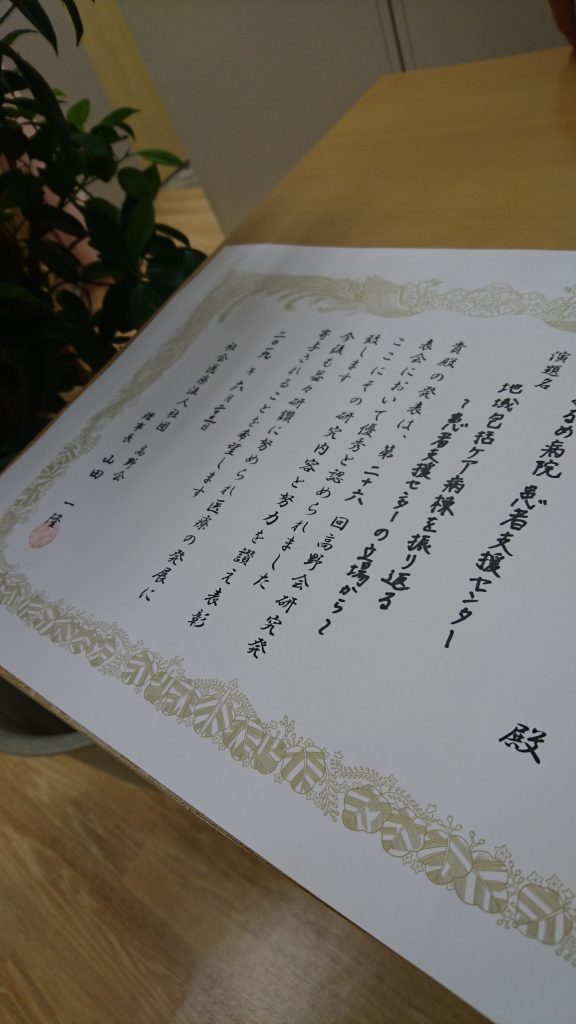 くるめ病院 患者支援センター
殿
演題名
地域包括ケア病棟を振り返る
~患者支援センターの立場から~
貴殿の発表は、第二十六回高野会研究発
表会において優秀と認められました
ここにその研究内容と努力を讃え表彰
致します
今後も益々研鑽に努められ医療の発展に
寄与されることを希望します
二〇一九年 六月
社会医療法人社団 高野会
理事長 山田 一隆